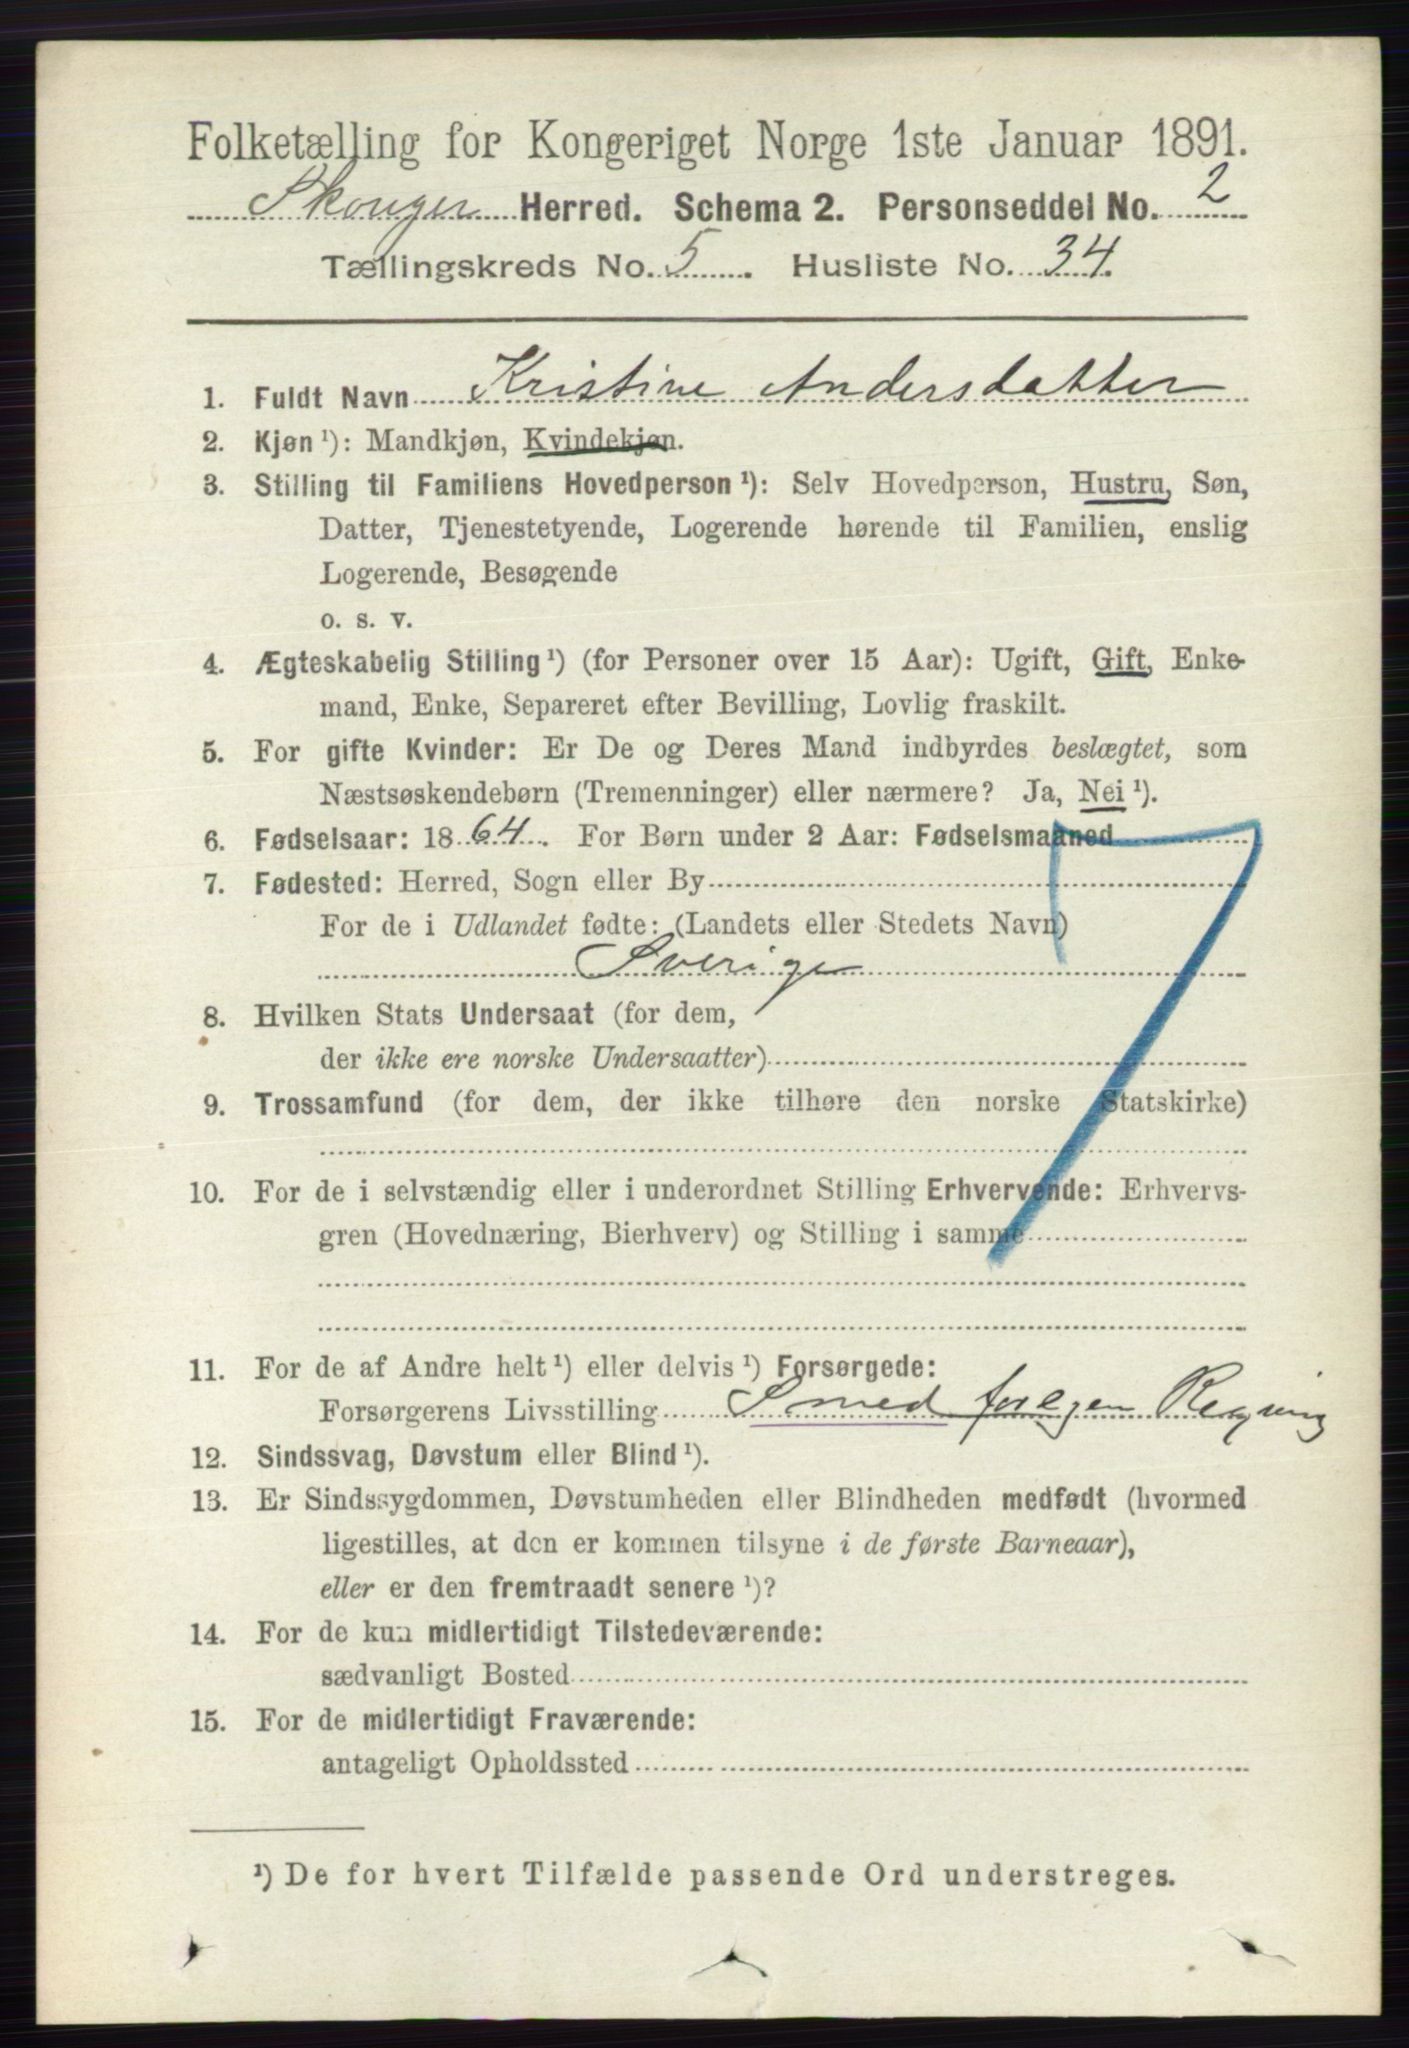 Folketælling for Kongeriget Norge 1ste Januar 1891.
Skouger Herred. Schema 2. Personseddel No. 2
Tællingskreds No. 5. Husliste No. 34.
1. Fuldt Navn Kristine Andersdatter
2. Kjøn ¹): Mandkjøn, Kvindekjøn.
3. Stilling til Familiens Hovedperson ¹): Selv Hovedperson, Hustru, Søn,
Datter, Tjenestetyende, Logerende hørende til Familien, enslig
Logerende, Besøgende
o. s. v.
4. Ægteskabelig Stilling ¹) (for Personer over 15 Aar): Ugift, Gift, Enke-
mand, Enke, Separeret efter Bevilling, Lovlig fraskilt.
5. For gifte Kvinder: Er De og Deres Mand indbyrdes beslægtet, som
Næstsøskendebørn (Tremenninger) eller nærmere? Ja, Nei ¹).
6. Fødselsaar: 1864. For Børn under 2 Aar: Fødselsmaaned
7. Fødested: Herred, Sogn eller By
For de i Udlandet fødte: (Landets eller Stedets Navn)
Sverige
8. Hvilken Stats Undersaat (for dem,
der ikke ere norske Undersaatter)
9. Trossamfund (for dem, der ikke tilhøre den norske Statskirke)
10. For de i selvstændig eller i underordnet Stilling Erhvervende: Erhvervs-
gren (Hovednæring, Bierhverv) og Stilling i samme
11. For de af Andre helt ¹) eller delvis ¹) Forsørgede:
Forsørgerens Livsstilling Smed for egen Regning
12. Sindssvag, Døvstum eller Blind ¹).
13. Er Sindssygdommen, Døvstumheden eller Blindheden medfødt (hvormed
ligestilles, at den er kommen tilsyne i de første Barneaar),
eller er den fremtraadt senere ¹)?
14. For de kun midlertidigt Tilstedeværende:
sædvanligt Bosted
15. For de midlertidigt Fraværende:
antageligt Opholdssted
¹) De for hvert Tilfælde passende Ord understreges.